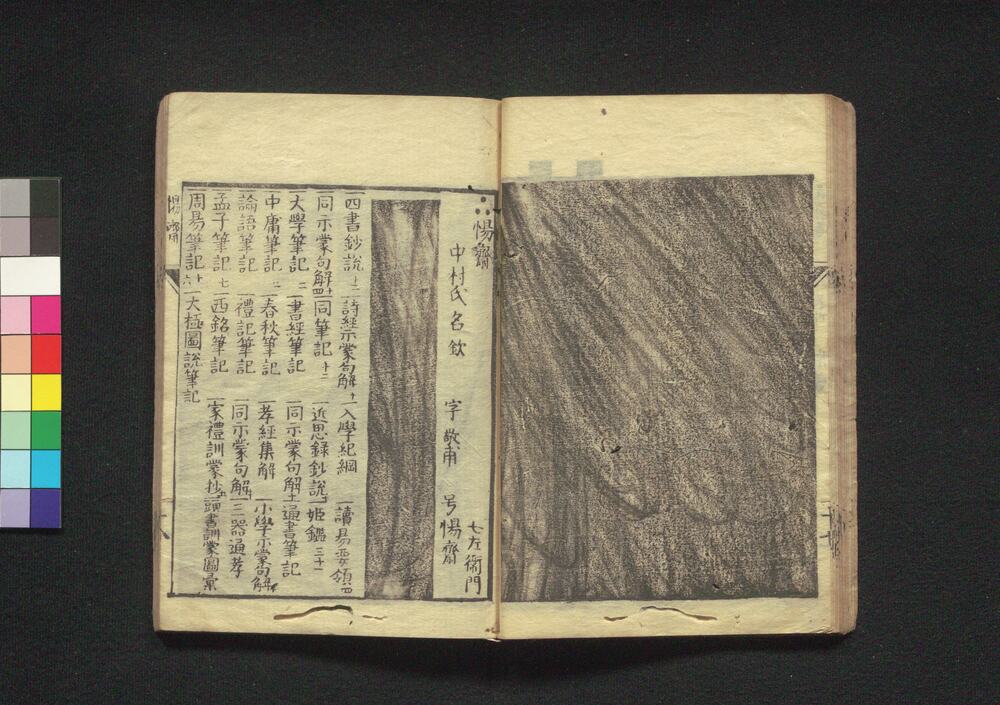 惕齋
中村氏 名欽 字敬甫 号惕齋
七左衛門
四書鈔説 十二 一詩經示蒙句解 十 一入學紀綱 一讀易要領 四
同示蒙句解 一同筆記 十二 一近思録鈔説 一姫鑑 三十一
一大學筆記 二 一書經筆記 一同示蒙句解 一通書筆記
一中庸筆記 二 一春秋筆記 一孝經集解 一小學示蒙句解
一論語筆記 一禮記筆記 一同示蒙句解 一三器通考
一孟子筆記 七 一西銘筆記 一家禮訓蒙抄 一頭書訓蒙圖彙
一周易筆記 一大極圖説筆記
惕齋